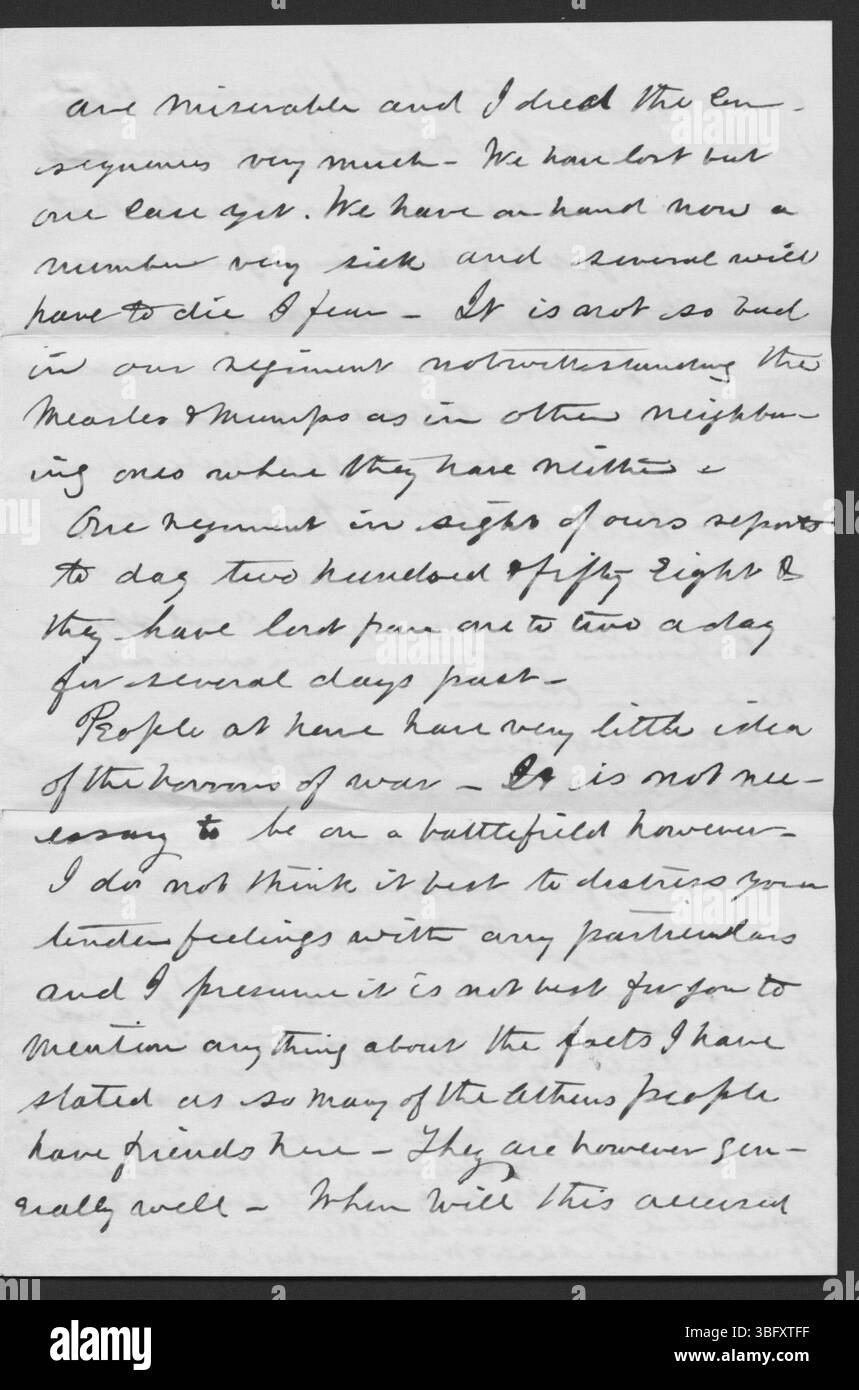 are miserable and I dread the Con-
sequences very much - We have lost but
one Case yet. We have on hand now a
number very sick and several will
have to die I fear - It is not so bad
in our regiment notwithstanding the
Measles & Mumps as in other neighbor-
ing ones where they have neither -
One regiment in sight of ours reports
to day two hundred & fifty Eight &
they have lost from one to two a day
for several days past -
People at home have very little idea
of the horrors of war - It is not nec-
essary to be on a battlefield however -
I do not think it best to distress your
tender feelings with any particulars
and I presume it is not best for you to
mention anything about the facts I have
stated as so many of the Athens people
have friends here - They are however gen-
erally well - When will this accursed
alamy
alamy
Image ID: 3BFXTFF
www.alamy.com